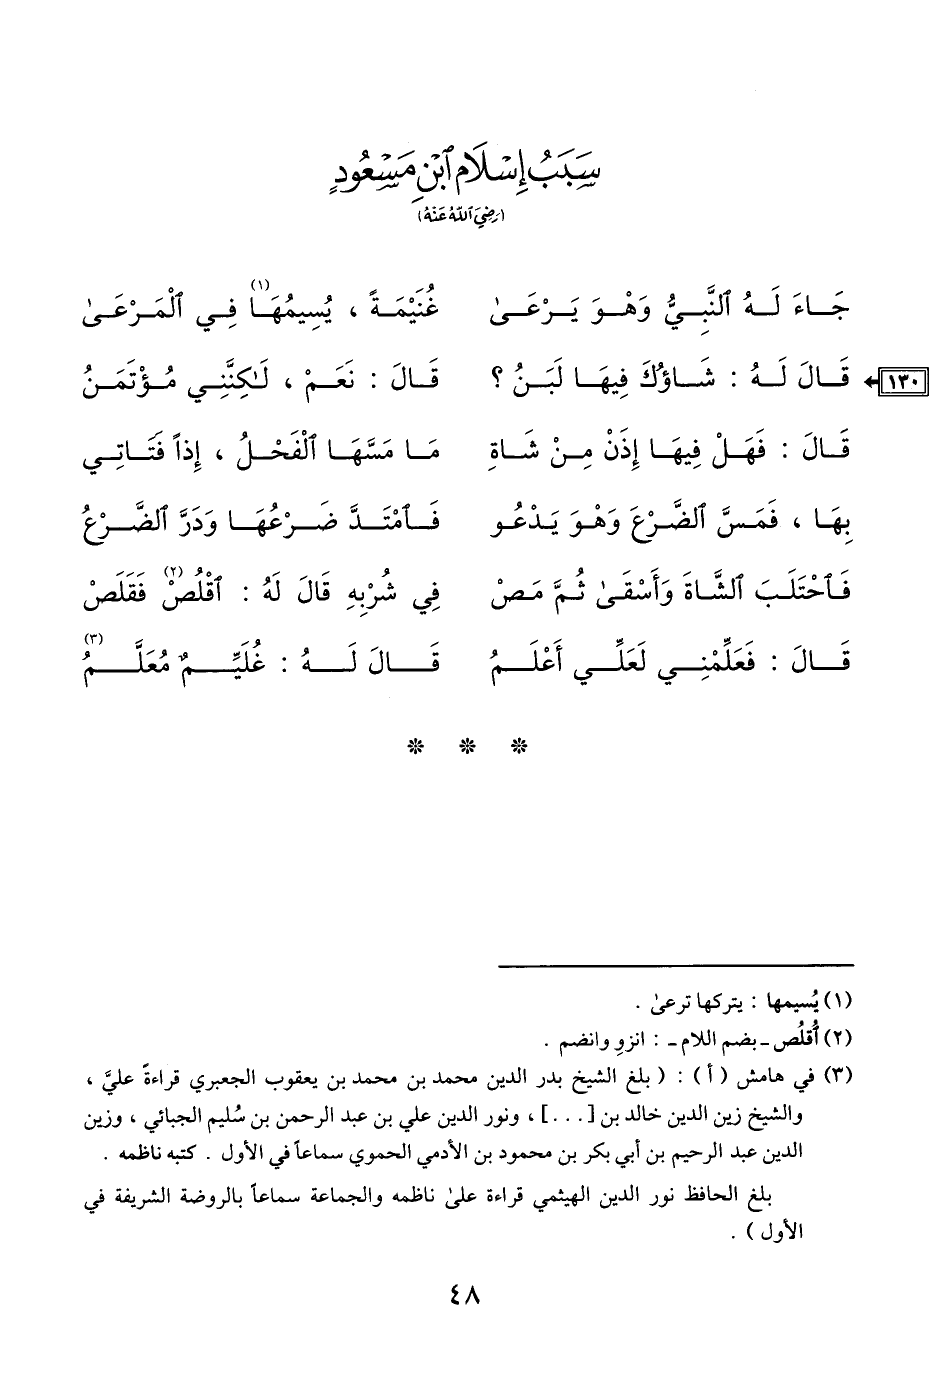 سَبَبُ إِسْلَامِ ٱبْنِ مَسْعُودٍ
(رَضِيَ ٱللهُ عَنْهُ)
جَاءَ لَهُ ٱلنَّبِيُّ وَهْوَ يَرْعَىٰ غُنَيْمَةً ، يُسِيمُهَا(١) فِي ٱلْمَرْعَىٰ
١٣٠ قَالَ لَهُ : شَاؤُكَ فِيهَا لَبَنُ ؟ قَالَ : نَعَمْ ، لَـٰكِنَّنِي مُؤْتَمَنُ
قَالَ : فَهَلْ فِيهَا إِذَنْ مِنْ شَاةِ مَا مَسَّهَا ٱلْفَحْلُ ، إِذاً فَتَاتِي
بِهَا ، فَمَسَّ ٱلضَّرْعَ وَهْوَ يَدْعُو فَٱمْتَدَّ ضَرْعُهَا وَدَرَّ ٱلضَّرْعُ
فَٱحْتَلَبَ ٱلشَّاةَ وَأَسْقَىٰ ثُمَّ مَصْ فِي شُرْبِهِ قَالَ لَهُ : ٱقْلُصْ(٢) فَقَلَصْ
قَالَ : فَعَلِّمْنِي لَعَلِّي أَعْلَمُ قَالَ لَهُ : غُلَيِّمٌ مُعَلَّمُ(٣)
* * *
(١) يُسيمها : يتركها ترعىٰ .
(٢) أُقلُص ـ بضم اللام ـ : انزوِ وانضم .
(٣) في هامش ( أ ) : ( بلغ الشيخ بدر الدين محمد بن محمد بن يعقوب الجعبري قراءةً عليَّ ،
والشيخ زين الدين خالد بن [. . .] ، ونور الدين علي بن عبد الرحمن بن سُليم الجبائي ، وزين
الدين عبد الرحيم بن أبي بكر بن محمود بن الأدمي الحموي سماعاً في الأول . كتبه ناظمه .
بلغ الحافظ نور الدين الهيثمي قراءة علىٰ ناظمه والجماعة سماعاً بالروضة الشريفة في
الأول ) .
٤٨